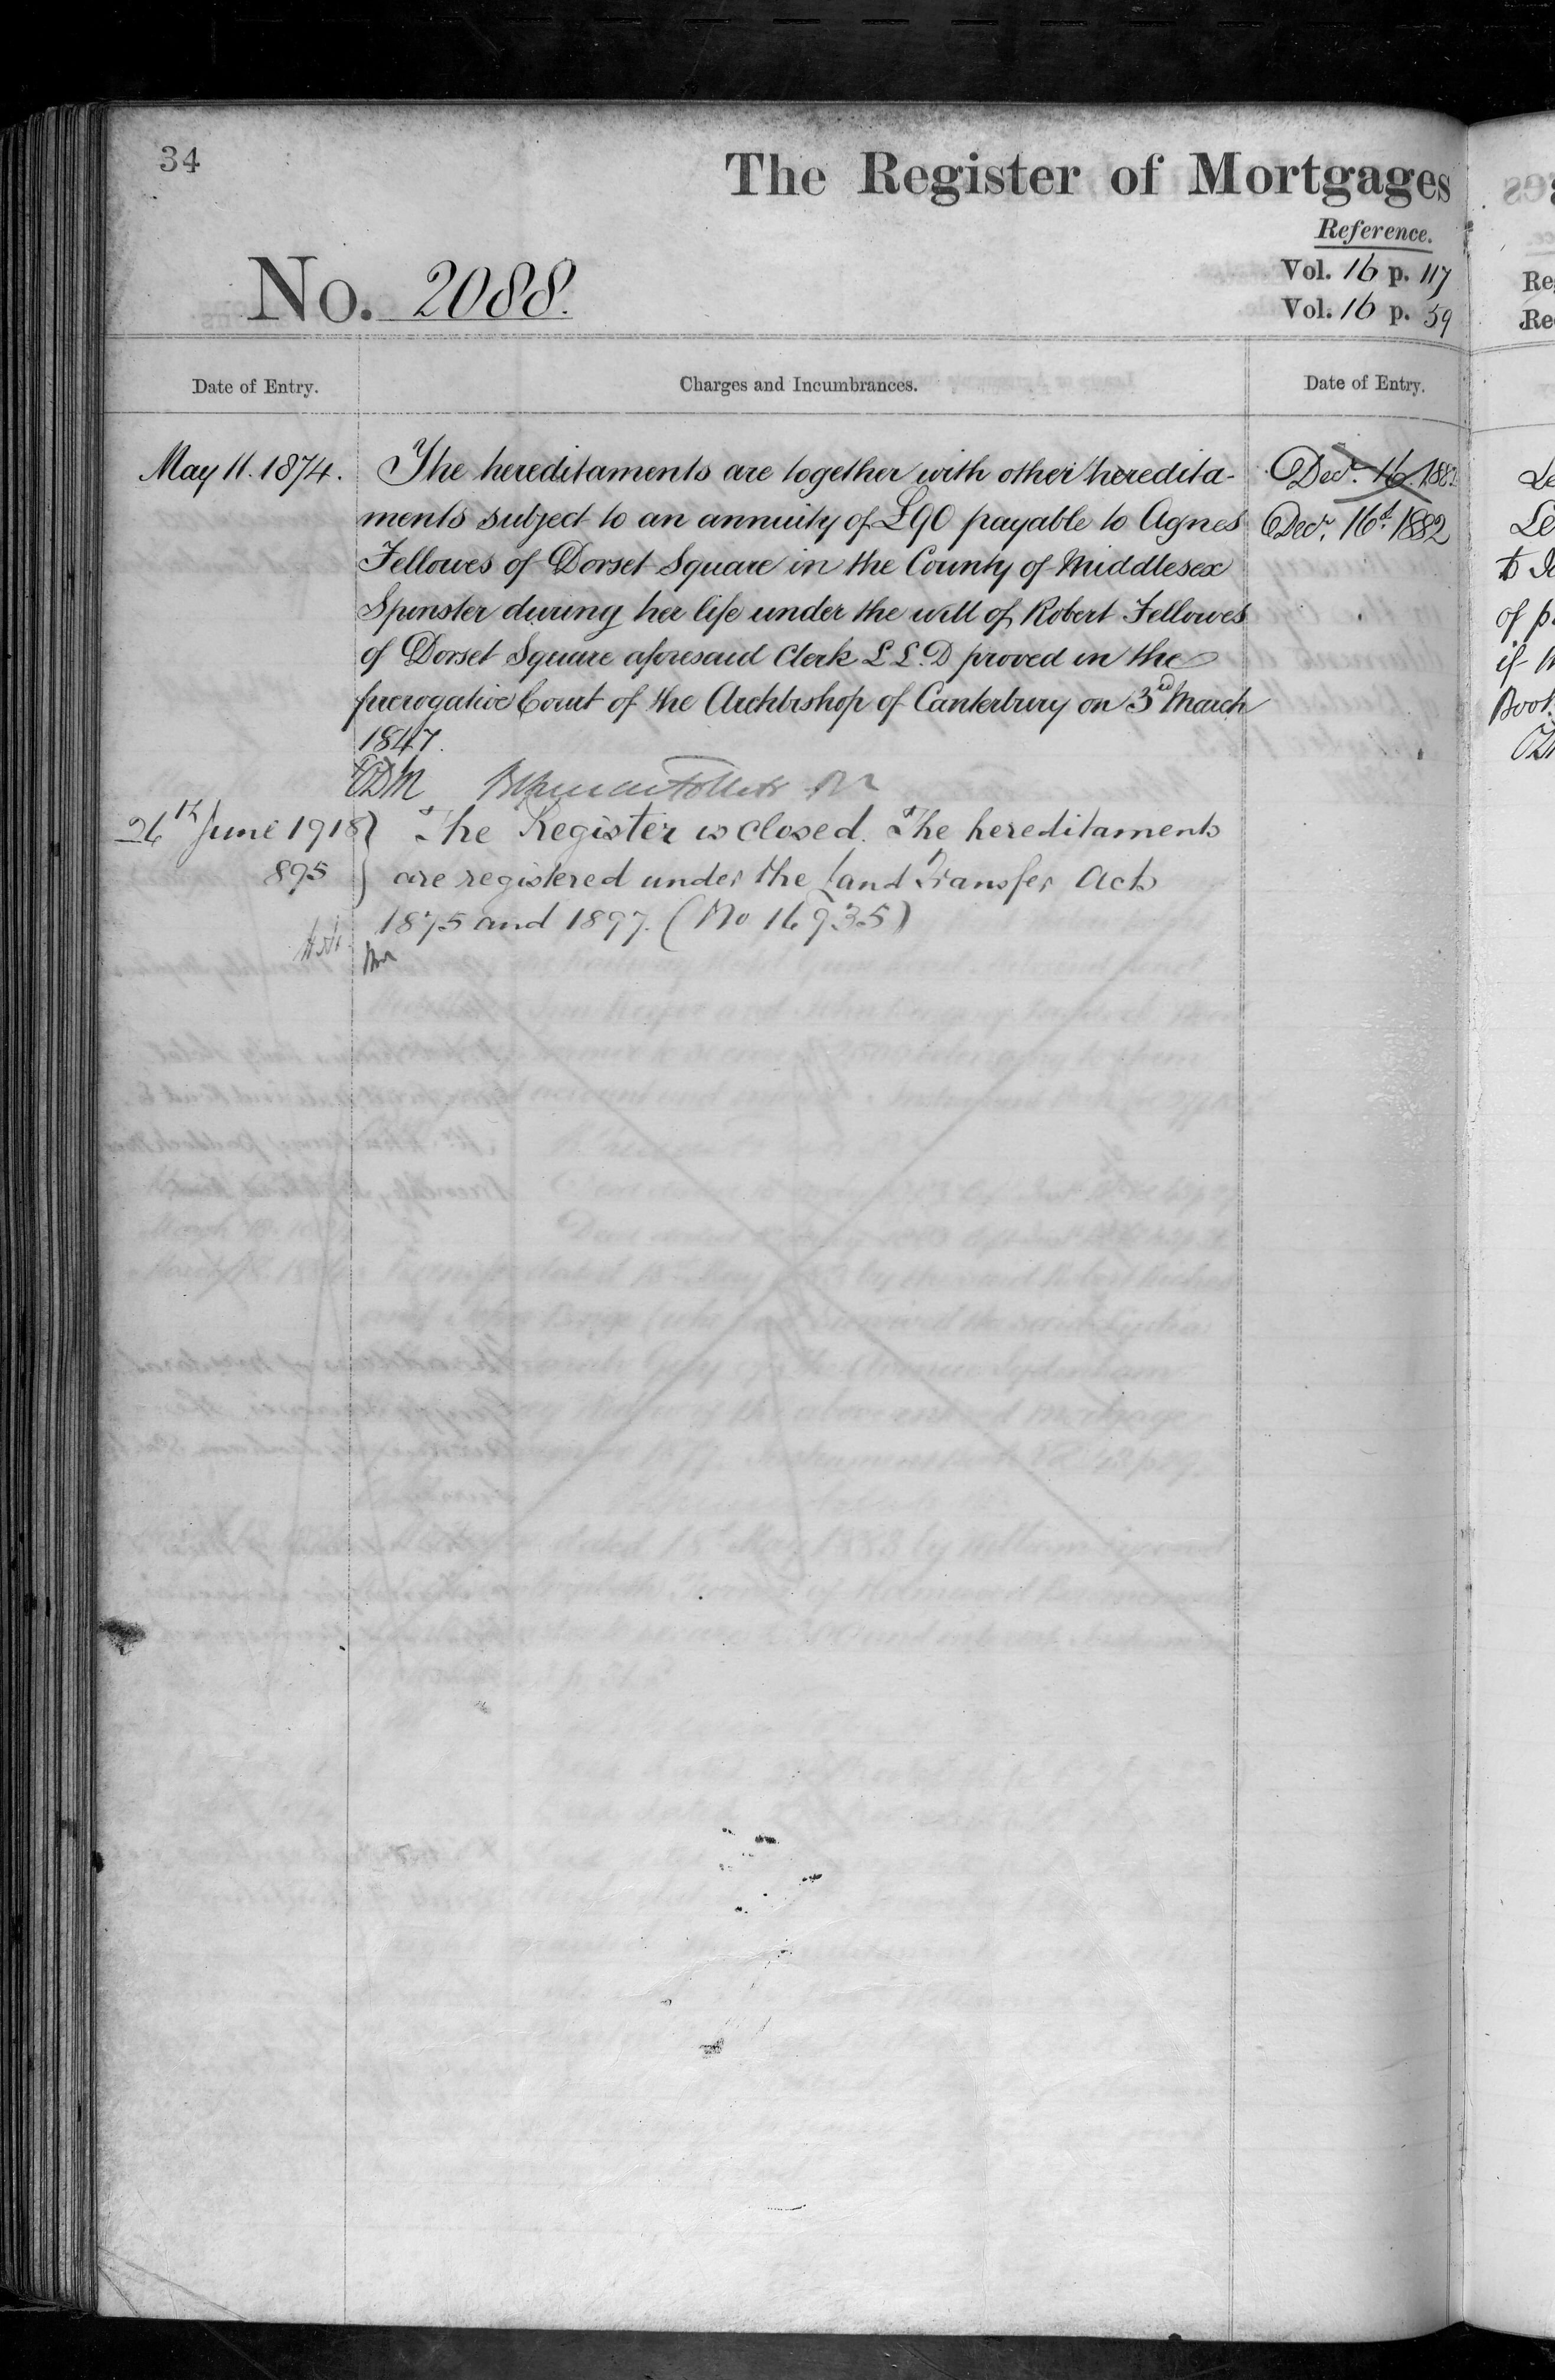 34
The Register of Mortgages
Reference.
Vol. 16 p. 117
Vol. 16 p. 59
No. 2088.
Date of Entry.
Charges and Incumbrances.
Date of Entry.
May 11. 1874.
The hereditaments are together with other heredita-
ments subject to an annuity of £90 payable to Agnes
Fellowes of Dorset Square in the County of Middlesex
Spinster during her life under the will of Robert Fellowes
of Dorset Square aforesaid Clerk L L. D proved in the
prerogative Court of the Archbishop of Canterbury on 3rd March
1847.
Decr. 16. 1882
Decr. 16th. 1882
26th June 1918
895
The Register is closed. The hereditaments
are registered under the Land Transfer Acts
1875 and 1897. (No 16935)
Re
Re
Le
Le
of p
if
Book